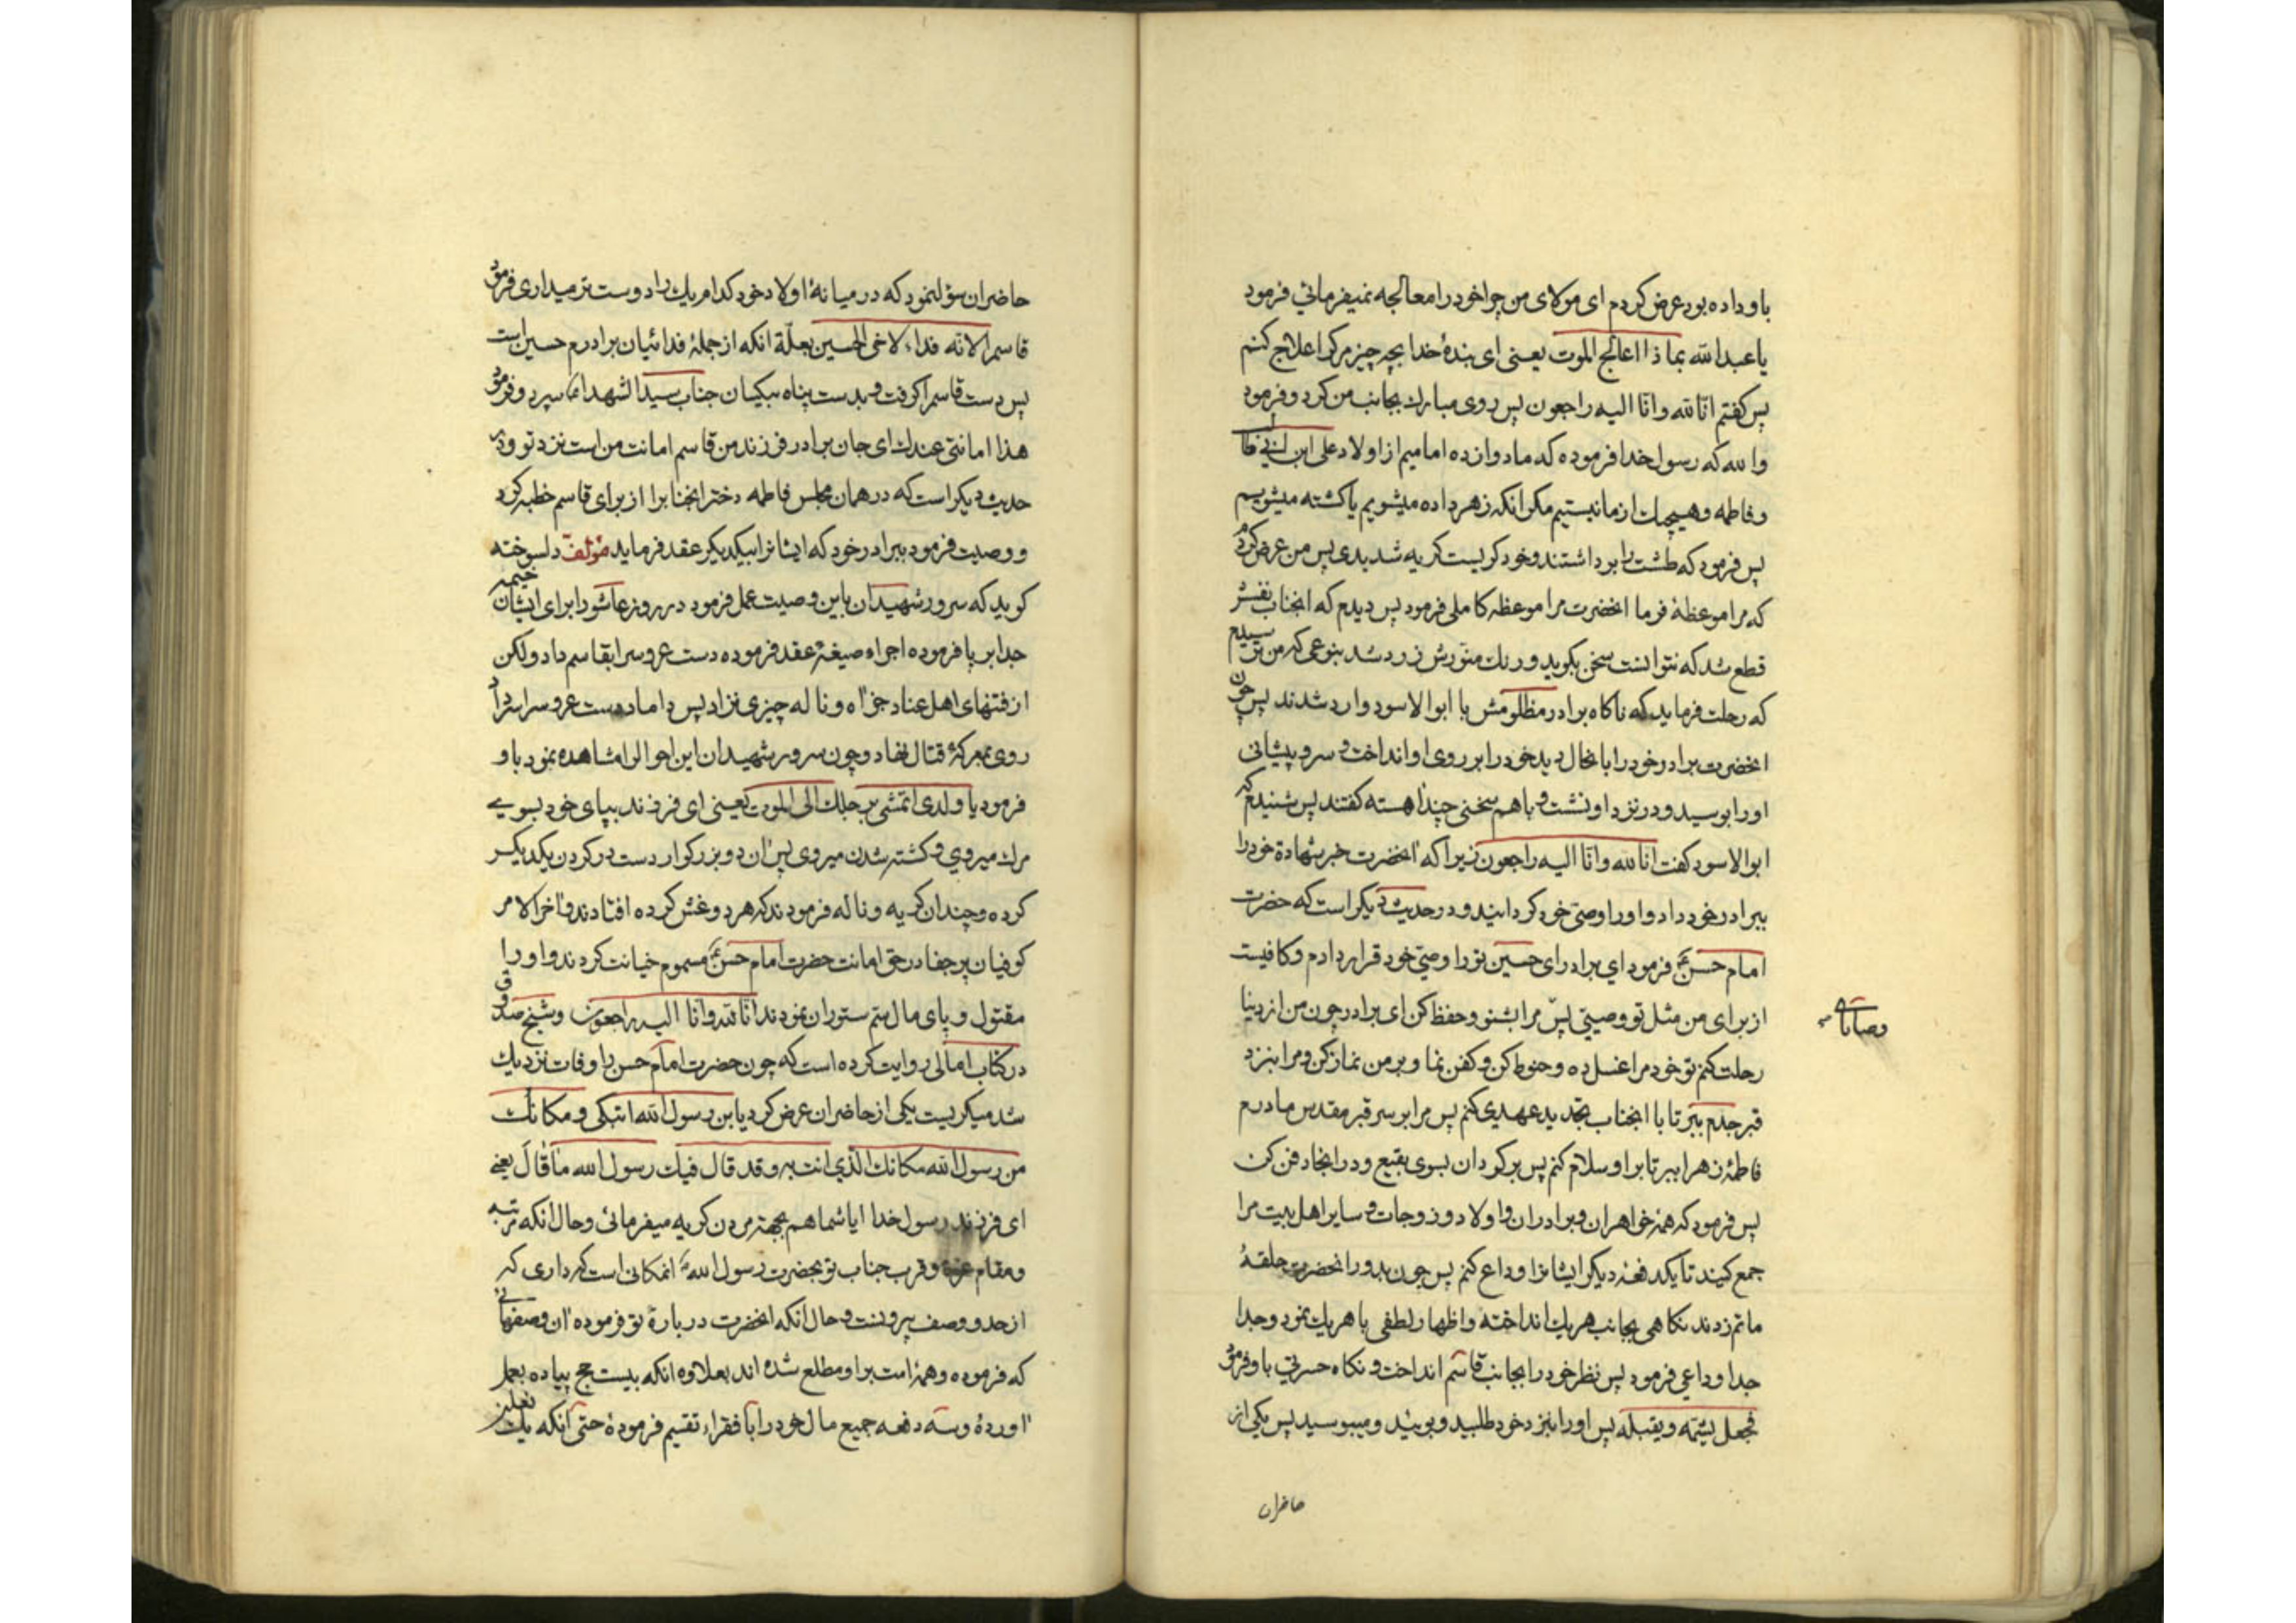 باو داده بود عرض کردم ای مولای من چرا خود را معالجه نمیفرمائی فرمود
یا عبدالله بما ذا اعالج الموت یعنی ای بندهٔ خدا بچه چیز مرک را علاج کنم
پس کفتم انا لله وانا الیه راجعون پس روی مبارک بجانب من کرد و فرمود
والله که رسول خدا فرموده که ما دوازده امامیم از اولاد علی ابن ابی طا
و فاطمه و هیچیک از ما نیستیم مکر انکه زهر داده میشویم یا کشته میشویم
پس فرمود که طشت را برداشتند و خود کریست کریه شدیدی پس من عرض کردم
که مرا موعظهٔ فرما انحضرت مرا موعظه کاملی فرمود پس دیدم که انجناب نفسش
قطع شد که نتوانست سخن بکوید و رنک منورش زرد شد بنوعی که من ترسیدم
که رحلت فرماید که ناکاه برادر مظلومش با ابوالاسود وارد شدند پس چون
انحضرت برادر خود را بانحال دید خود را بر روی او انداخت و سر و پیشانی
او را بوسید و در نزد او نشست و باهم سخنی چند اهسته کفتند پس شنیدم که
ابوالاسود کفت انا لله وانا الیه راجعون زیرا که انحضرت خبر شهادة خود را
ببرادر خود داد و او را وصی خود کردانید و در حدیث دیکر است که حضرت
امام حسنؑ فرمود ای برادر ای حسین تو را وصی خود قرار دادم و کافیست
از برای من مثل تو وصیتی پس مرا بشنو و حفظ کن ای برادر چون من از دنیا
رحلت کنم تو خود مرا غسل ده و حنوط کن و کفن نما و بر من نماز کن و مرا بنزد
قبر جدم ببر تا با انجناب تجدید عهدی کنم پس مرا بر سر قبر مقدس مادرم
فاطمهٔ زهرا ببر تا بر او سلام کنم پس برکردان بسوی بقیع و در انجا دفن کن
پس فرمود که همهٔ خواهران و برادران و اولاد و زوجات و سایر اهل بیت مرا
جمع کنید تا یکدفعهٔ دیکر ایشانرا وداع کنم پس چون بدور انحضرت حلقهٔ
ماتم زدند نکاهی بجانب هریک انداخته و اظهار لطفی با هریک نمود و جدا
جدا وداعی فرمود پس نظر خود را بجانب قاسم انداخت و نکاه حسرتی باو فرمود
فجعل یشمه و یقبله پس او را بنزد خود طلبید و بوئید و میبوسید پس یکی از
حاضران
وصایا
حاضران سؤال نمود که در میانهٔ اولاد خود کدام یک را دوست تر میداری فرمود
قاسم را لانه فداء لاخی الحسین بعلّة انکه از جملهٔ فدائیان برادرم حسین است
پس دست قاسم را کرفت و بدست پناه بیکسان جناب سیدالشهدا سپرد و فرمود
هذا امانتی عندک ای جان برادر فرزند من قاسم امانت من است نزد تو و در
حدیث دیکر است که در همان مجلس فاطمه دختر انجنابرا از برای قاسم خطبه کرد
و وصیت فرمود ببرادر خود که ایشانرا بیکدیکر عقد فرماید مؤلف دلسوخته
کوید که سرور شهیدان باین وصیت عمل فرمود در روز عاشورا برای ایشان خیمه
جدا بر پا فرموده اجراء صیغهٔ عقد فرموده دست عروس را بقاسم داد ولکن
از فتنهای اهل عناد جز اه و ناله چیزی نزاد پس داماد دست عروس را سر داد
روی بمعرکهٔ قتال نهاد و چون سرور شهیدان این احوال را مشاهده نمود باو
فرمود یا ولدی اتمشی برجلک الی الموت یعنی ای فرزند بپای خود بسوی
مرک میروی و کشته شدن میروی پس ان دو بزرکوار دست در کردن یکدیکر
کرده و چندان کریه و ناله فرمودند که هر دو غش کرده افتادند و اخر الامر
کوفیان پرجفا در حق امانت حضرت امام حسنؑ مسموم خیانت کردند و او را
مقتول و پای مال سم ستوران نمودند انا لله وانا الیه راجعون و شیخ صدوق
در کتاب امالی روایت کرده است که چون حضرت امام حسن را وفات نزدیک
شد میکریست یکی از حاضران عرض کرد یابن رسول الله اتبکی و مکانک
من رسول الله مکانک الذی انت به و قد قال فیک رسول الله ما قال یعنی
ای فرزند رسول خدا ایا شما هم بجهة مردن کریه میفرمائی و حال انکه مرتبه
و مقام عزة و قرب جناب تو بحضرت رسول الله انمکانی است که داری که
از حد و وصف بیرونست و حال انکه انحضرت در بارهٔ تو فرموده ان وصفهائی
که فرموده و همهٔ امت بر او مطلع شده اند بعلاوه انکه بیست حج پیاده بعمل
اوردهٔ و سه دفعه جمیع مال خود را با فقراء تقسیم فرمودهٔ حتی انکه یک نعلین